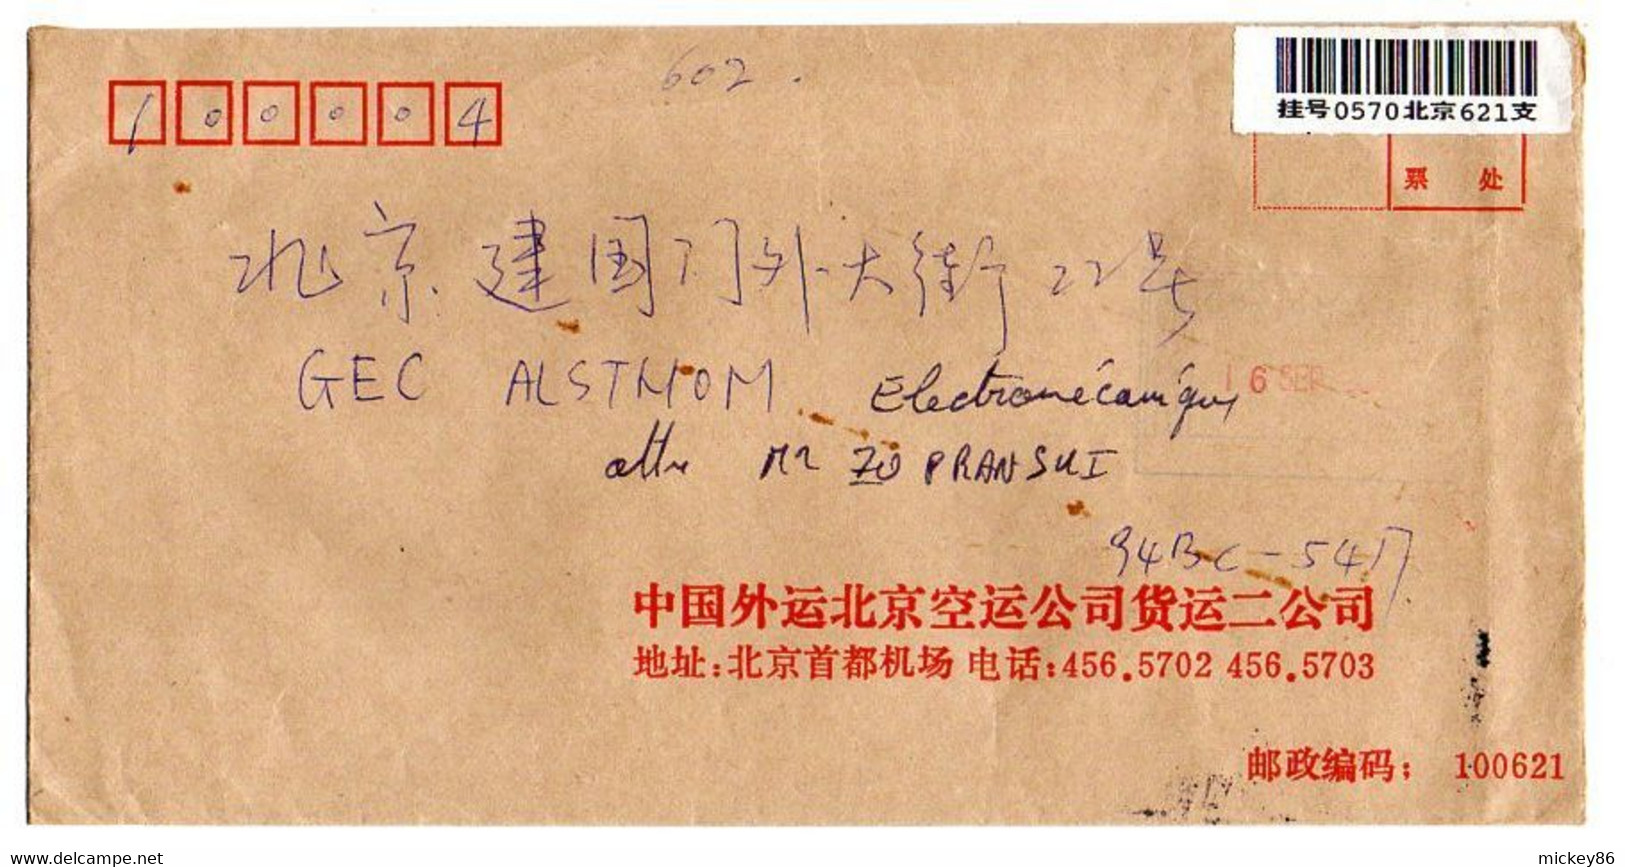 602.
挂号0570北京621支
100004
票 处
北京建国门外大街22号
GEC ALSTHOM Electromécanique
16 SEP
attn Mr ZO PRANSUI
94BC-547
中国外运北京空运公司货运二公司
地址:北京首都机场 电话:456.5702 456.5703
邮政编码: 100621
delcampe.net
mickey86